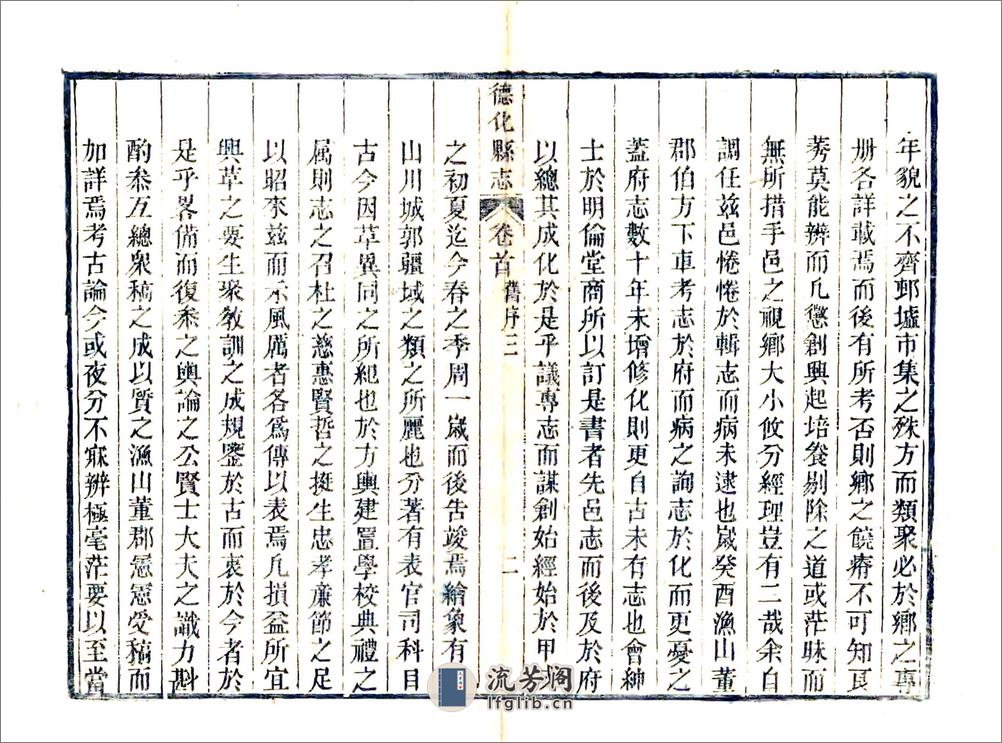 年貌之不齊邨墟市集之殊方而類聚必於鄉之專
册各詳載焉而後有所考否則鄉之饒瘠不可知良
莠莫能辨而凡懲創興起培養剔除之道或茫昧而
無所措手邑之視鄉大小攸分經理豈有二哉余自
調任玆邑惓惓於輯志而病未逮也歲癸酉漁山董
郡伯方下車考志於府而病之詢志於化而更憂之
蓋府志數十年未增修化則更自古未有志也會紳
士於明倫堂商所以訂是書者先邑志而後及於府
以總其成化於是乎議專志而謀創始經始於甲戌
德化縣志 卷首 舊序三 二
之初夏迄今春之季周一歲而後告竣焉繪象有
山川城郭疆域之類之所麗也分著有表官司科目
古今因革異同之所紀也於方輿建置學校典禮之
属則志之召杜之慈惠賢哲之挺生忠孝廉節之足
以昭來玆而示風厲者各爲傳以表焉凡損益所宜
興革之要生聚教訓之成規鑒於古而衷於今者於
是乎畧備而復叅之輿論之公賢士大夫之識力斟
酌叅互總衆稿之成以質之漁山董郡憲憲受稿而
加詳焉考古論今或夜分不寐辨極毫茫要以至當
流芳阁
lfglib.cn